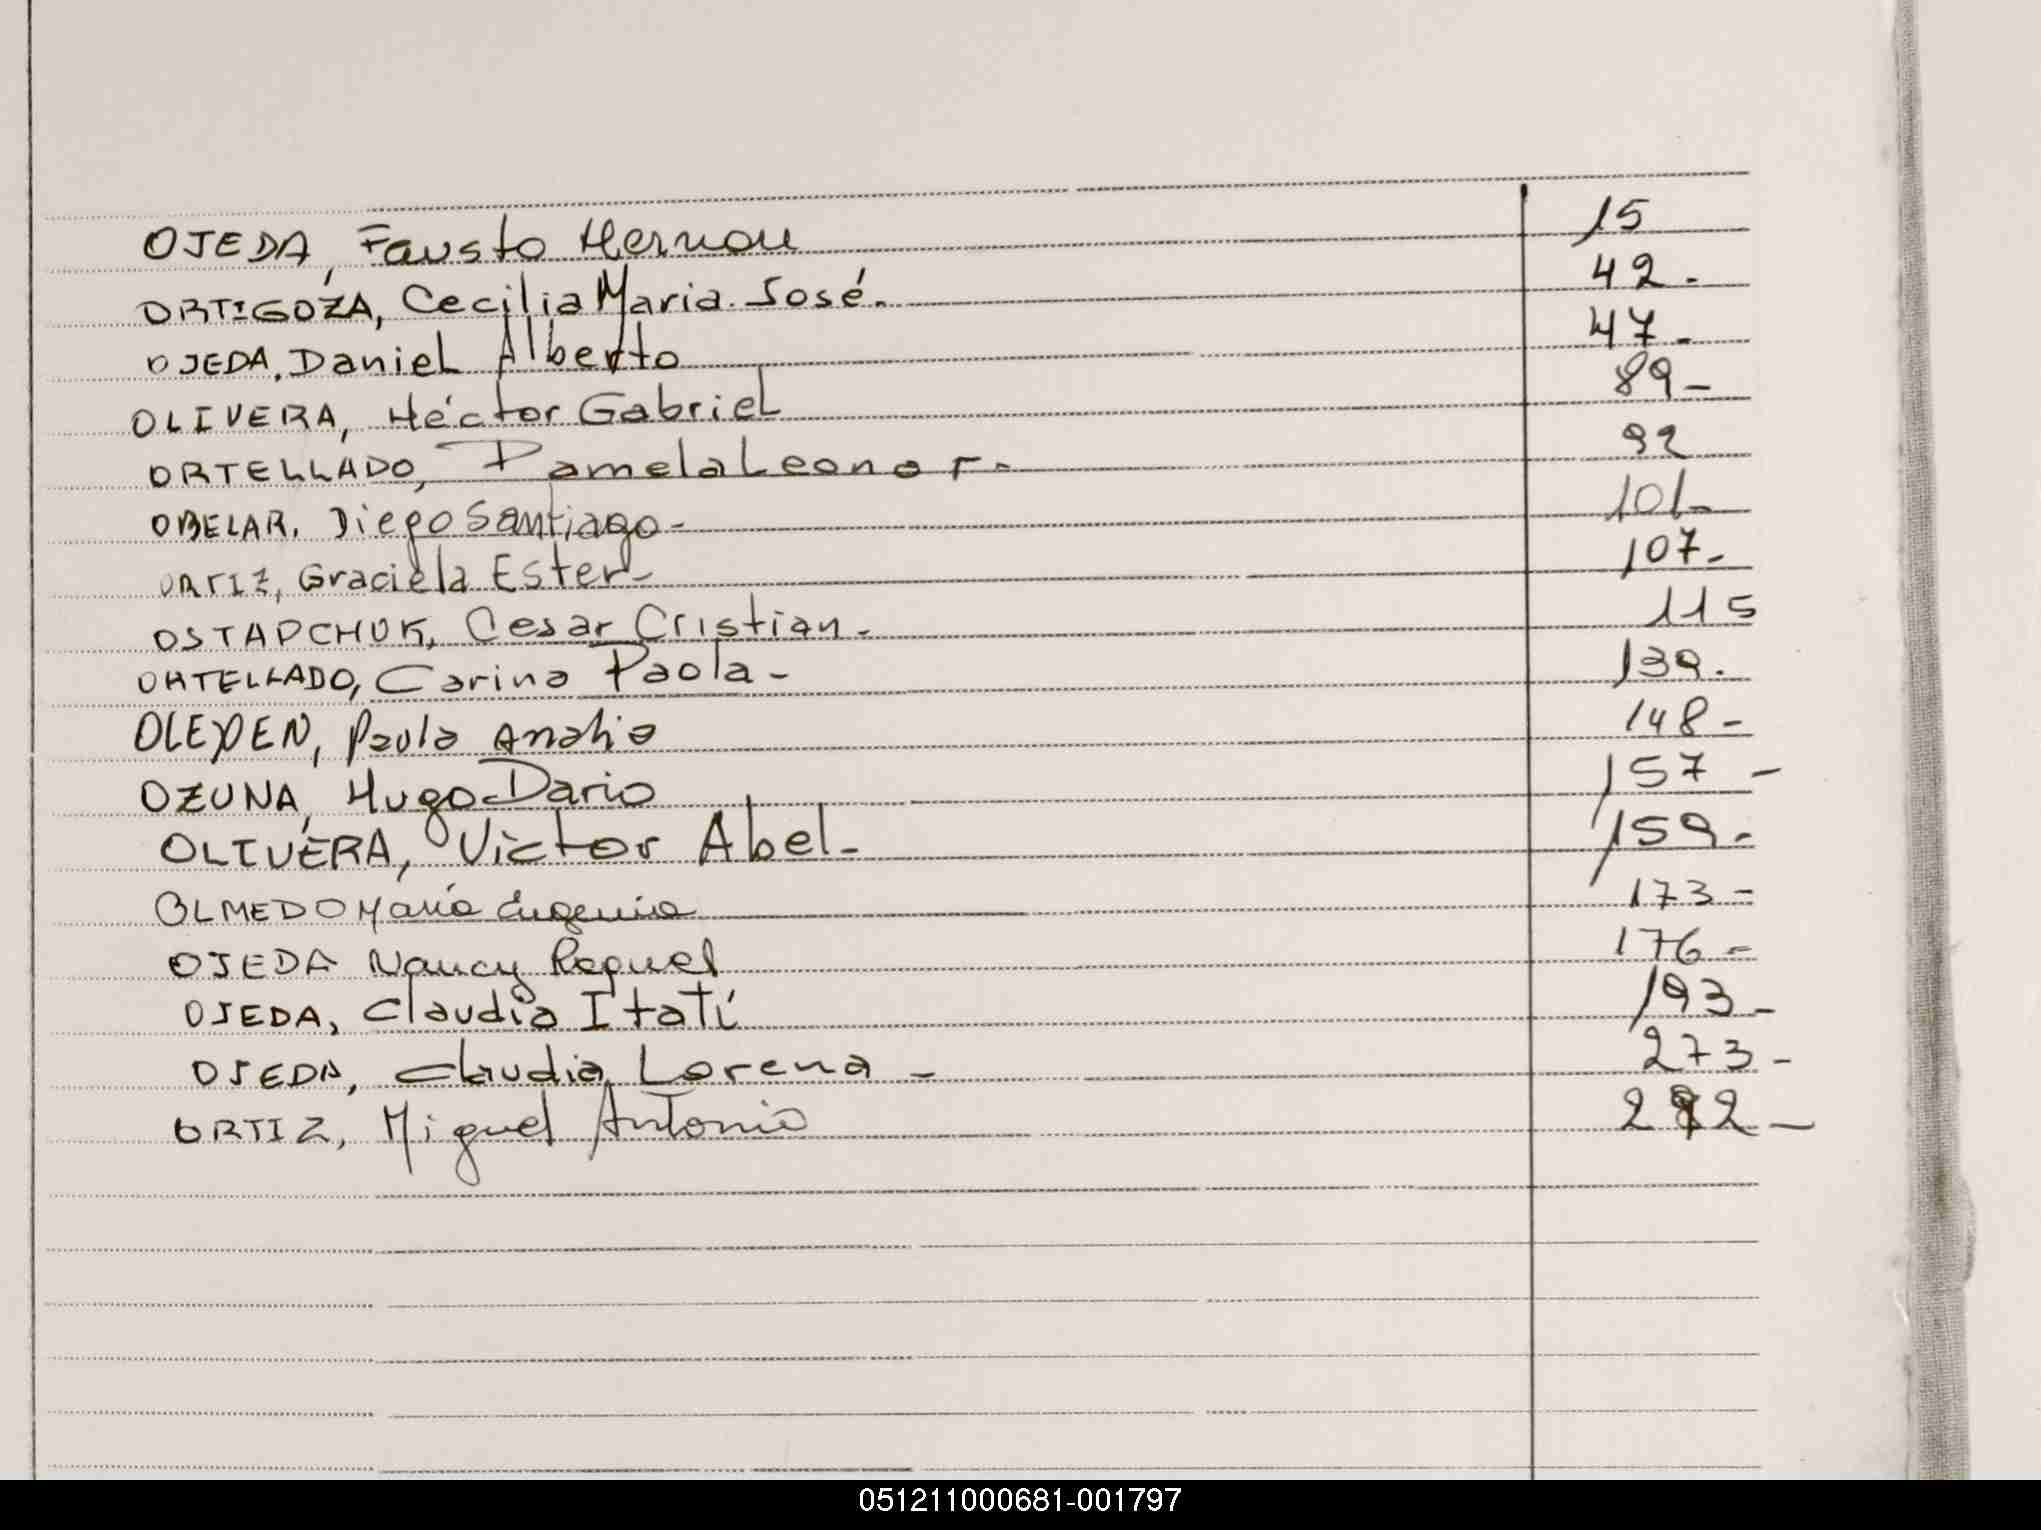 OJEDA, Fausto Hernan 15
ORTIGOZA, Cecilia Maria José. 42-
OJEDA, Daniel Alberto 47-
OLIVERA, Héctor Gabriel 89-
ORTELLADO, Pamela Leonor- 92
OBELAR, Diego Santiago- 101-
ORTIZ, Graciela Ester- 107-
OSTAPCHUK, Cesar Cristian. 115
ORTELLADO, Carina Paola- 139.
Paula Analia 148-
OZUNA, Hugo Dario 157-
OLIVERA, Victor Abel- 159-
OLMEDO Maria Eugenia 173-
OJEDA Nancy Raquel 176-
OJEDA, Claudia Itatí 193-
OJEDA, Claudia Lorena- 273-
ORTIZ, Miguel Antonio
051211000681-001797